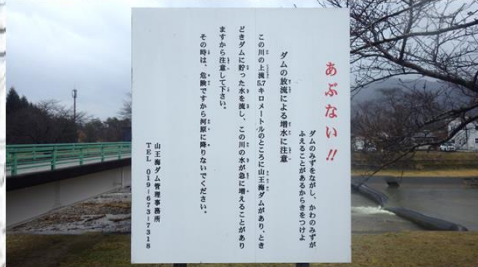 あぶない!!
ダムのみずをながし、かわのみずが
ふえることがあるからきをつけよ
ダムの放流による増水に注意
この川の上流5.7キロメートルのところに山王海ダムがあり、とき
どきダムに貯った水を流し、この川の水が急に増えることがあり
ますから注意して下さい。
その時は、危険ですから河原に降りないでください。
山王海ダム管理事務所
TEL 019-673-7318